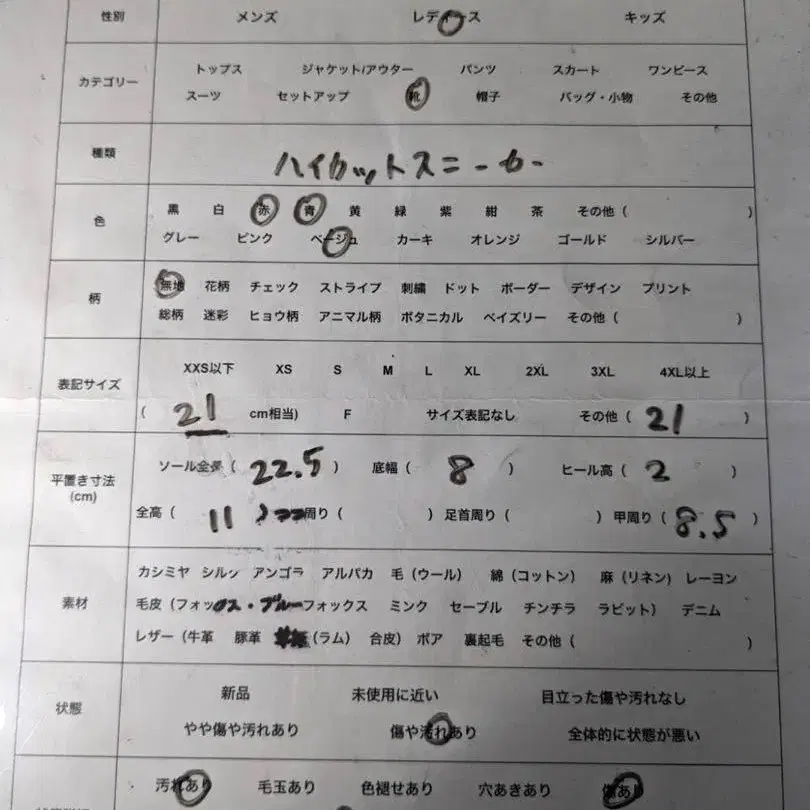 性別 メンズ レディース キッズ
カテゴリー トップス ジャケット/アウター パンツ スカート ワンピース
スーツ セットアップ 靴 帽子 バッグ・小物 その他
種類 ハイカットスニーカー
色 黒 白 赤 青 黄 緑 紫 紺 茶 その他 ( )
グレー ピンク ベージュ カーキ オレンジ ゴールド シルバー
柄 無地 花柄 チェック ストライプ 刺繍 ドット ボーダー デザイン プリント
総柄 迷彩 ヒョウ柄 アニマル柄 ボタニカル ペイズリー その他 ( )
表記サイズ XXS以下 XS S M L XL 2XL 3XL 4XL以上
( 21 cm相当) F サイズ表記なし その他 ( 21 )
平置き寸法 (cm) ソール全長 ( 22.5 ) 底幅 ( 8 ) ヒール高 ( 2 )
全高 ( 11 周り ( ) 足首周り ( ) 甲周り ( 8.5 )
素材 カシミヤ シルク アンゴラ アルパカ 毛 (ウール) 綿 (コットン) 麻 (リネン) レーヨン
毛皮 (フォックス・ブルーフォックス ミンク セーブル チンチラ ラビット) デニム
レザー (牛革 豚革 (ラム) 合皮) ボア 裏起毛 その他 ( )
状態 新品 未使用に近い 目立った傷や汚れなし
やや傷や汚れあり 傷や汚れあり 全体的に状態が悪い
汚れあり 毛玉あり 色褪せあり 穴あきあり 傷あり